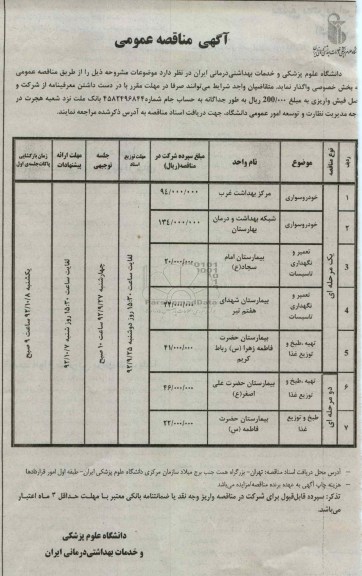 آگهی مناقصه عمومی
دانشگاه علوم پزشکی و خدمات بهداشتی‌درمانی ایران در نظر دارد موضوعات مشروحه ذیل را از طریق مناقصه عمومی
به بخش خصوصی واگذار نماید. متقاضیان واجد شرایط می‌توانند صرفا در مهلت مقرر با در دست داشتن معرفینامه از شرکت و
اصل فیش واریزی به مبلغ ۲۰۰/۰۰۰ ریال به طور جداگانه به حساب جام شماره ۴۵۸۲۴۹۶۸۴۴ بانک ملت نزد شعبه هجرت در
وجه مدیریت نظارت و توسعه امور عمومی دانشگاه، جهت دریافت اسناد مناقصه به آدرس ذکرشده مراجعه نمایند.
ردیف | نوع مناقصه | موضوع | نام واحد | مبلغ سپرده شرکت در مناقصه(ریال) | مهلت توزیع اسناد | جلسه توجیهی | مهلت ارائه پیشنهادات | زمان بازگشایی پاکات‌جلسه‌ی اول
۱ | خودروسواری | مرکز بهداشت غرب | ۹۴/۰۰۰/۰۰۰
۲ | خودروسواری | شبکه بهداشت و درمان بهارستان | ۱۳۴/۰۰۰/۰۰۰
۳ | تعمیر و نگهداری تاسیسات | بیمارستان امام سجاد(ع) | ۲۰/۰۰۰/۰۰۰
۴ | تعمیر و نگهداری تاسیسات | بیمارستان شهدای هفتم تیر
۵ | تهیه ،طبخ و توزیع غذا | بیمارستان حضرت فاطمه زهرا (س) رباط کریم | ۴۱/۰۰۰/۰۰۰
۶ | تهیه ،طبخ و توزیع غذا | بیمارستان حضرت علی اصغر(ع) | ۴۶/۰۰۰/۰۰۰
۷ | طبخ و توزیع غذا | بیمارستان حضرت فاطمه (س) | ۲۲/۰۰۰/۰۰۰
یک مرحله ای
دو مرحله ای
لغایت ساعت ۱۵:۳۰ روز دوشنبه ۹۲/۹/۲۵
چهارشنبه ۹۲/۹/۲۷ ساعت ۱۰ صبح
لغایت ساعت ۱۵:۳۰ روز شنبه ۹۲/۱۰/۷
یکشنبه ۹۲/۱۰/۸ ساعت ۹ صبح
– آدرس محل دریافت اسناد مناقصه: تهران- بزرگراه همت جنب برج میلاد سازمان مرکزی دانشگاه علوم پزشکی ایران- طبقه اول امور قراردادها
– هزینه چاپ آگهی به عهده برنده مناقصه/مزایده می‌باشد
تذکر: سپرده قابل‌قبول برای شرکت در مناقصه واریز وجه نقد یا ضمانتنامه بانکی معتبر با مهلت حداقل ۳ ماه اعتبار
می‌باشد.
دانشگاه علوم پزشکی
و خدمات بهداشتی‌درمانی ایران